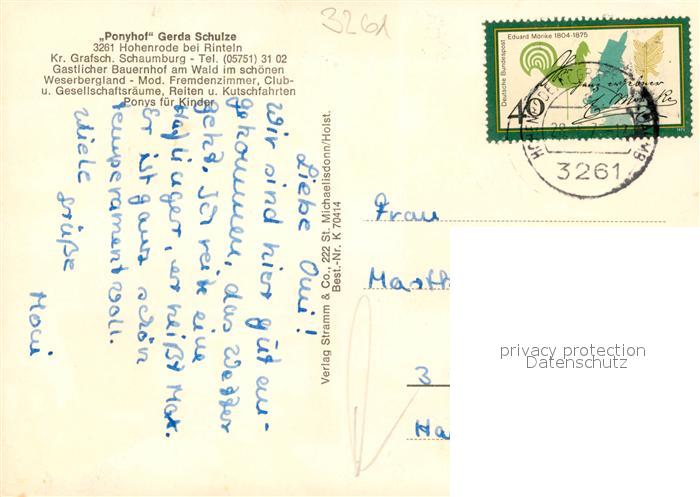 3261
„Ponyhof“ Gerda Schulze
3261 Hohenrode bei Rinteln
Kr. Grafsch. Schaumburg - Tel. (05751) 31 02
Gastlicher Bauernhof am Wald im schönen
Weserbergland - Mod. Fremdenzimmer, Club-
u. Gesellschaftsräume, Reiten u. Kutschfahrten
Ponys für Kinder
Liebe Omi!
Wir sind hier gut an-
gekommen, das Wetter
geht. Ich reite eine
Haflinger, er heißt Max.
Er ist ganz schön
temperamentvoll.
Viele Grüße
Moni
Verlag Stramm & Co., 222 St. Michaelisdonn/Holst.
Best.-Nr. K 70414
Eduard Mörike 1804-1875
Deutsche Bundespost
40
1975
3261
Frau
3
Ha
privacy protection
Datenschutz